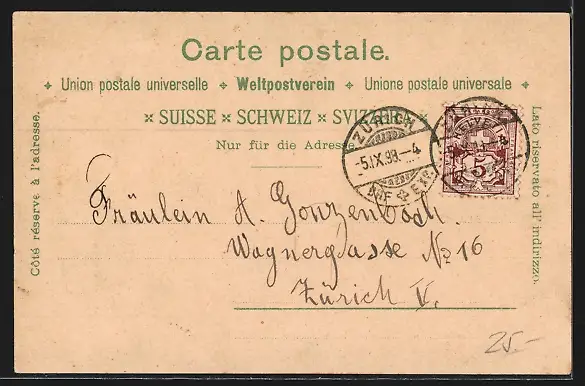 Carte postale.
Union postale universelle ✦ Weltpostverein ✦ Unione postale universale
SUISSE × SCHWEIZ × SVIZZERA
Nur für die Adresse
Côté réservé à l'adresse.
Lato riservato all' indirizzo.
ZÜRICH
-5.IX.98.-4
BRF EXP.
5
Fräulein A. Gonzenbach.
Wagnergasse No 16
Zürich V.
25.-